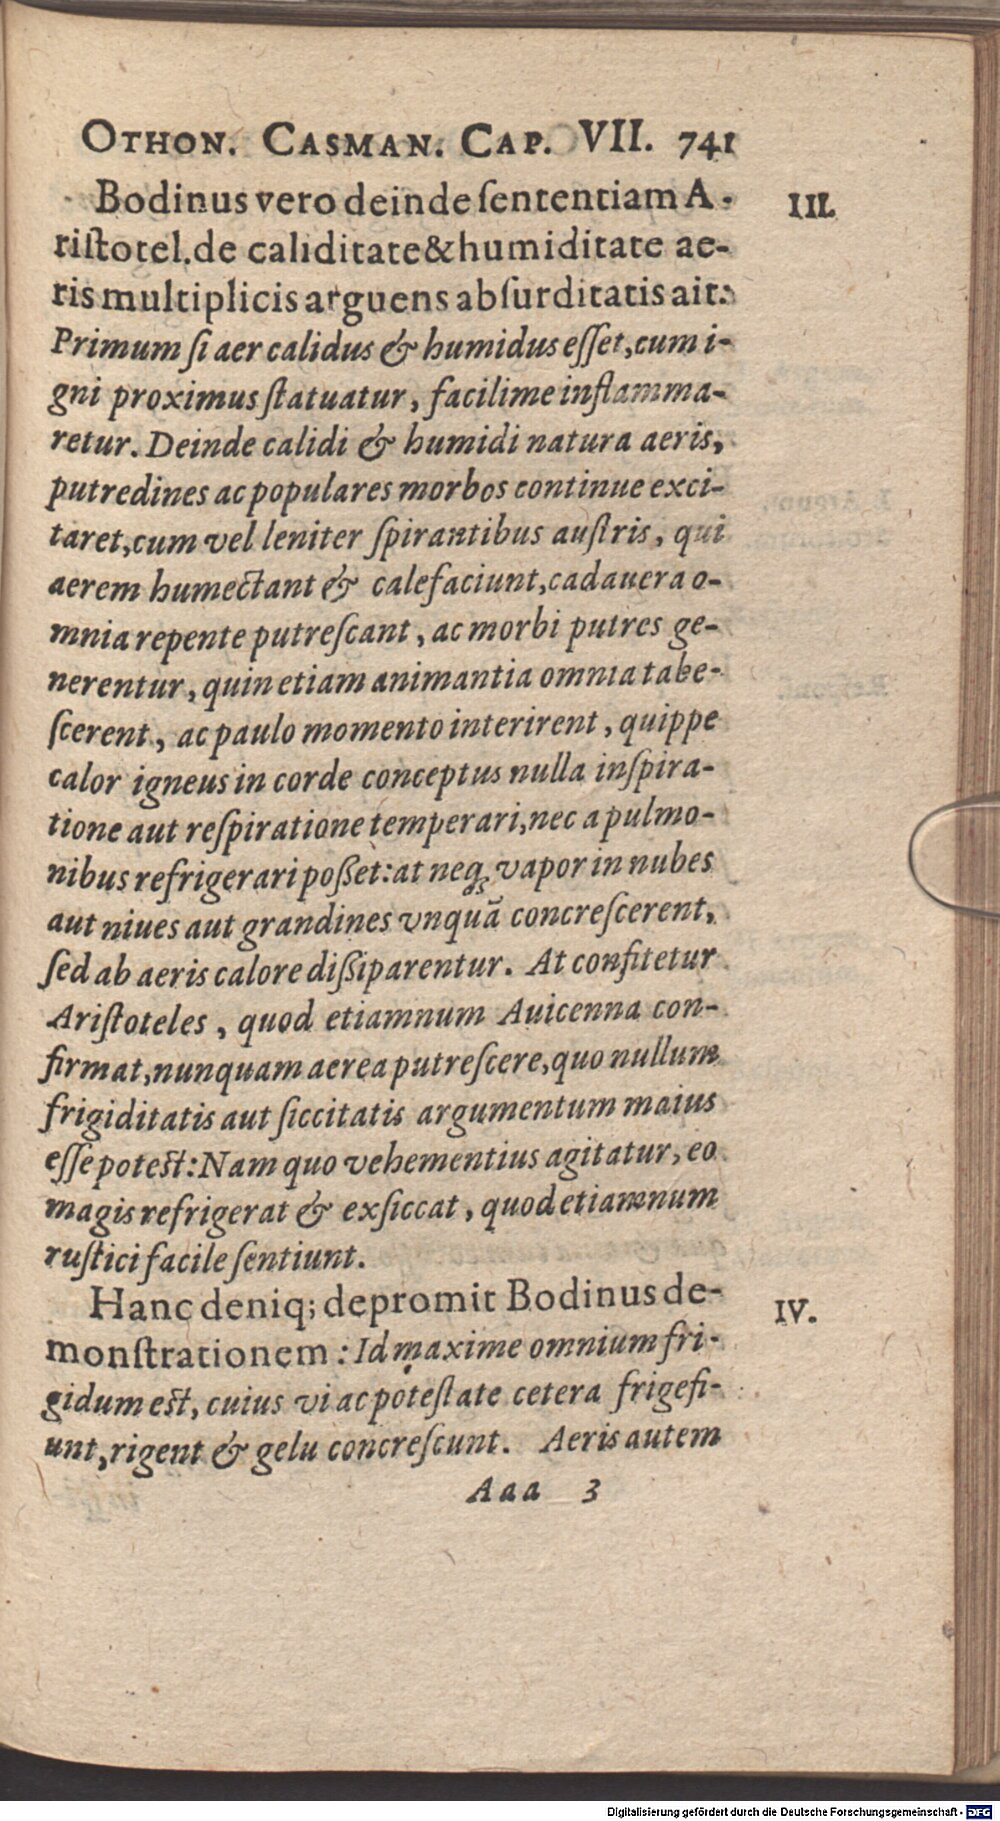 OTHON. CASMAN. CAP. VII. 741
Bodinus vero deinde ſententiam A-
riſtotel. de caliditate & humiditate ae-
ris multiplicis arguens abſurditatis ait:
III.
Primum ſi aer calidus & humidus eſſet, cum i-
gni proximus ſtatuatur, facilime inflamma-
retur. Deinde calidi & humidi natura aeris,
putredines ac populares morbos continue exci-
taret, cum vel leniter ſpirantibus auſtris, qui
aerem humectant & calefaciunt, cadauera o-
mnia repente putreſcant, ac morbi putres ge-
nerentur, quin etiam animantia omnia tabe-
ſcerent, ac paulo momento interirent, quippe
calor igneus in corde conceptus nulla inſpira-
tione aut reſpiratione temperari, nec a pulmo-
nibus refrigerari poßet: at neq; vapor in nubes
aut niues aut grandines vnquā concreſcerent,
ſed ab aeris calore dißiparentur. At confitetur
Ariſtoteles, quod etiamnum Auicenna con-
firmat, nunquam aerea putreſcere, quo nullum
frigiditatis aut ſiccitatis argumentum maius
eſſe poteſt: Nam quo vehementius agitatur, eo
magis refrigerat & exſiccat, quod etiamnum
ruſtici facile ſentiunt.
Hanc deniq; depromit Bodinus de-
monſtrationem: Id maxime omnium fri-
IV.
gidum eſt, cuius vi ac poteſtate cetera frigefi-
unt, rigent & gelu concreſcunt. Aeris autem
Aaa 3
Digitalisierung gefördert durch die Deutsche Forschungsgemeinschaft - DFG